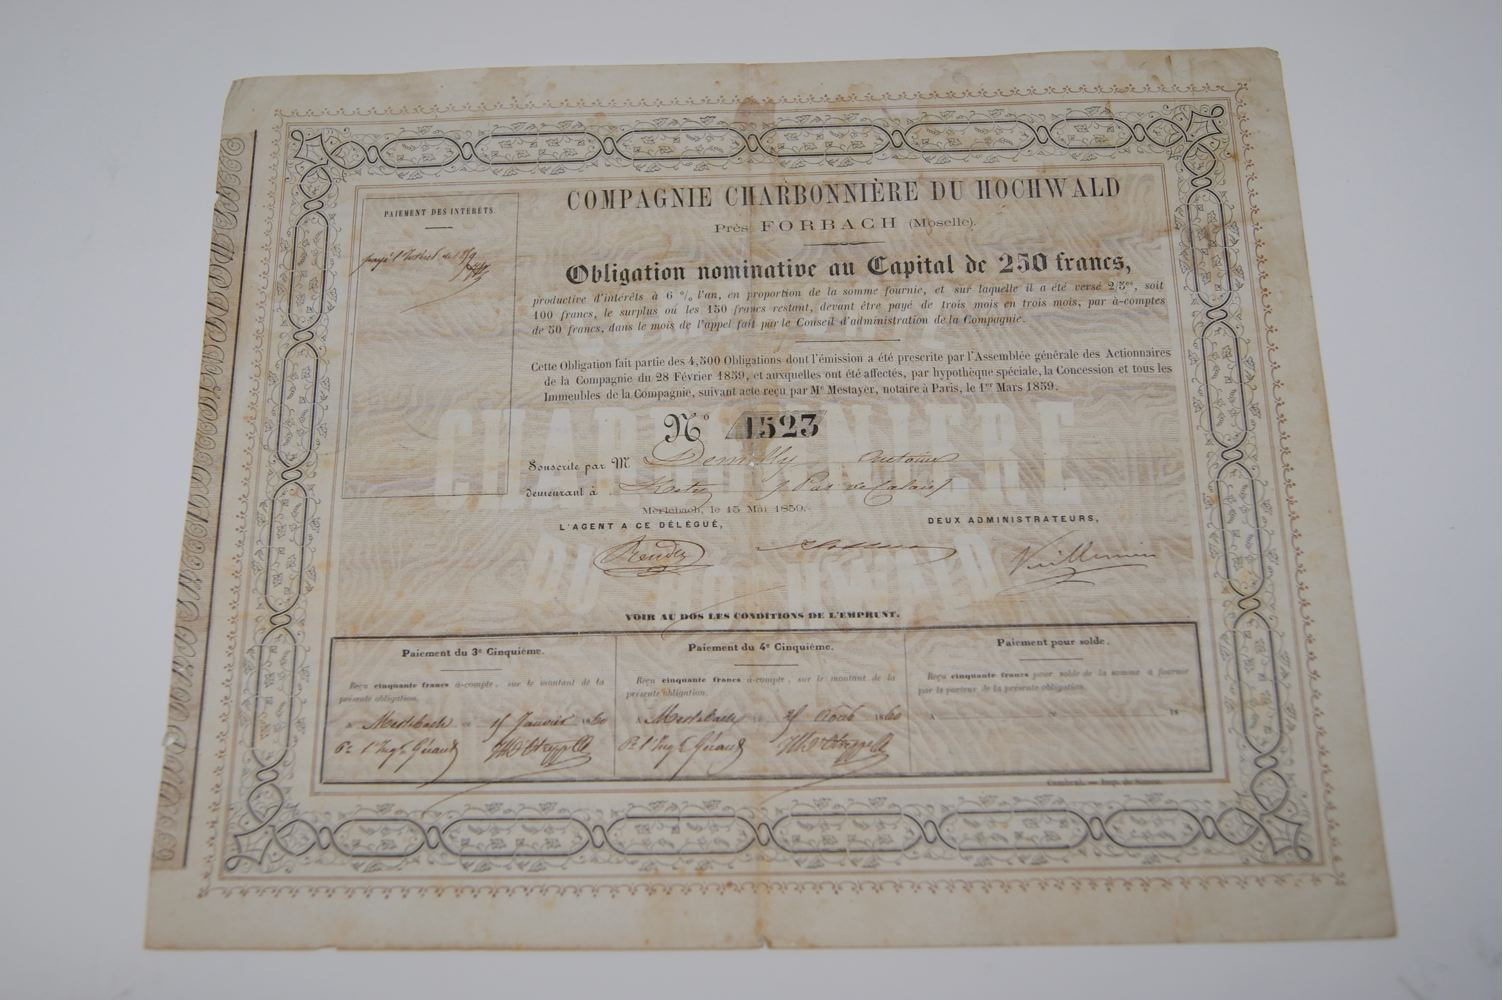 COMPAGNIE CHARBONNIÈRE DU HOCHWALD
Près FORBACH (Moselle).
PAIEMENT DES INTÉRÊTS.
Obligation nominative au Capital de 250 francs,
productive d'intérêts à 6 % l'an, en proportion de la somme fournie, et sur laquelle il a été versé 2/5es, soit
100 francs, le surplus où les 150 francs restant, devant être payé de trois mois en trois mois, par à-comptes
de 50 francs, dans le mois de l'appel fait par le Conseil d'administration de la Compagnie.
Cette Obligation fait partie des 4,500 Obligations dont l'émission a été prescrite par l'Assemblée générale des Actionnaires
de la Compagnie du 28 Février 1859, et auxquelles ont été affectés, par hypothèque spéciale, la Concession et tous les
Immeubles de la Compagnie, suivant acte reçu par Me Mestayer, notaire à Paris, le 1er Mars 1859.
CHARBONNIERE
N° 1523
Souscrite par M Demilly Antoine
demeurant à Pas de Calais
Merlebach, le 15 Mai 1859.
L'AGENT A CE DÉLÉGUÉ,
DEUX ADMINISTRATEURS,
Vuillemin
DU HOCHWALD
VOIR AU DOS LES CONDITIONS DE L'EMPRUNT.
Paiement du 3e Cinquième.
Reçu cinquante francs à-compte, sur le montant de la
présente obligation.
A Merlebach le 15 Janvier 1860
Pr l'Ingr Géraud
Paiement du 4e Cinquième.
Reçu cinquante francs à-compte, sur le montant de la
présente obligation.
A Merlebach le Août 1860
Pr l'Ingr Géraud
Paiement pour solde.
Reçu cinquante francs pour solde de la somme à fournir
par le porteur de la présente obligation.
A le 18
Cambrai. — Imp. de Simon.